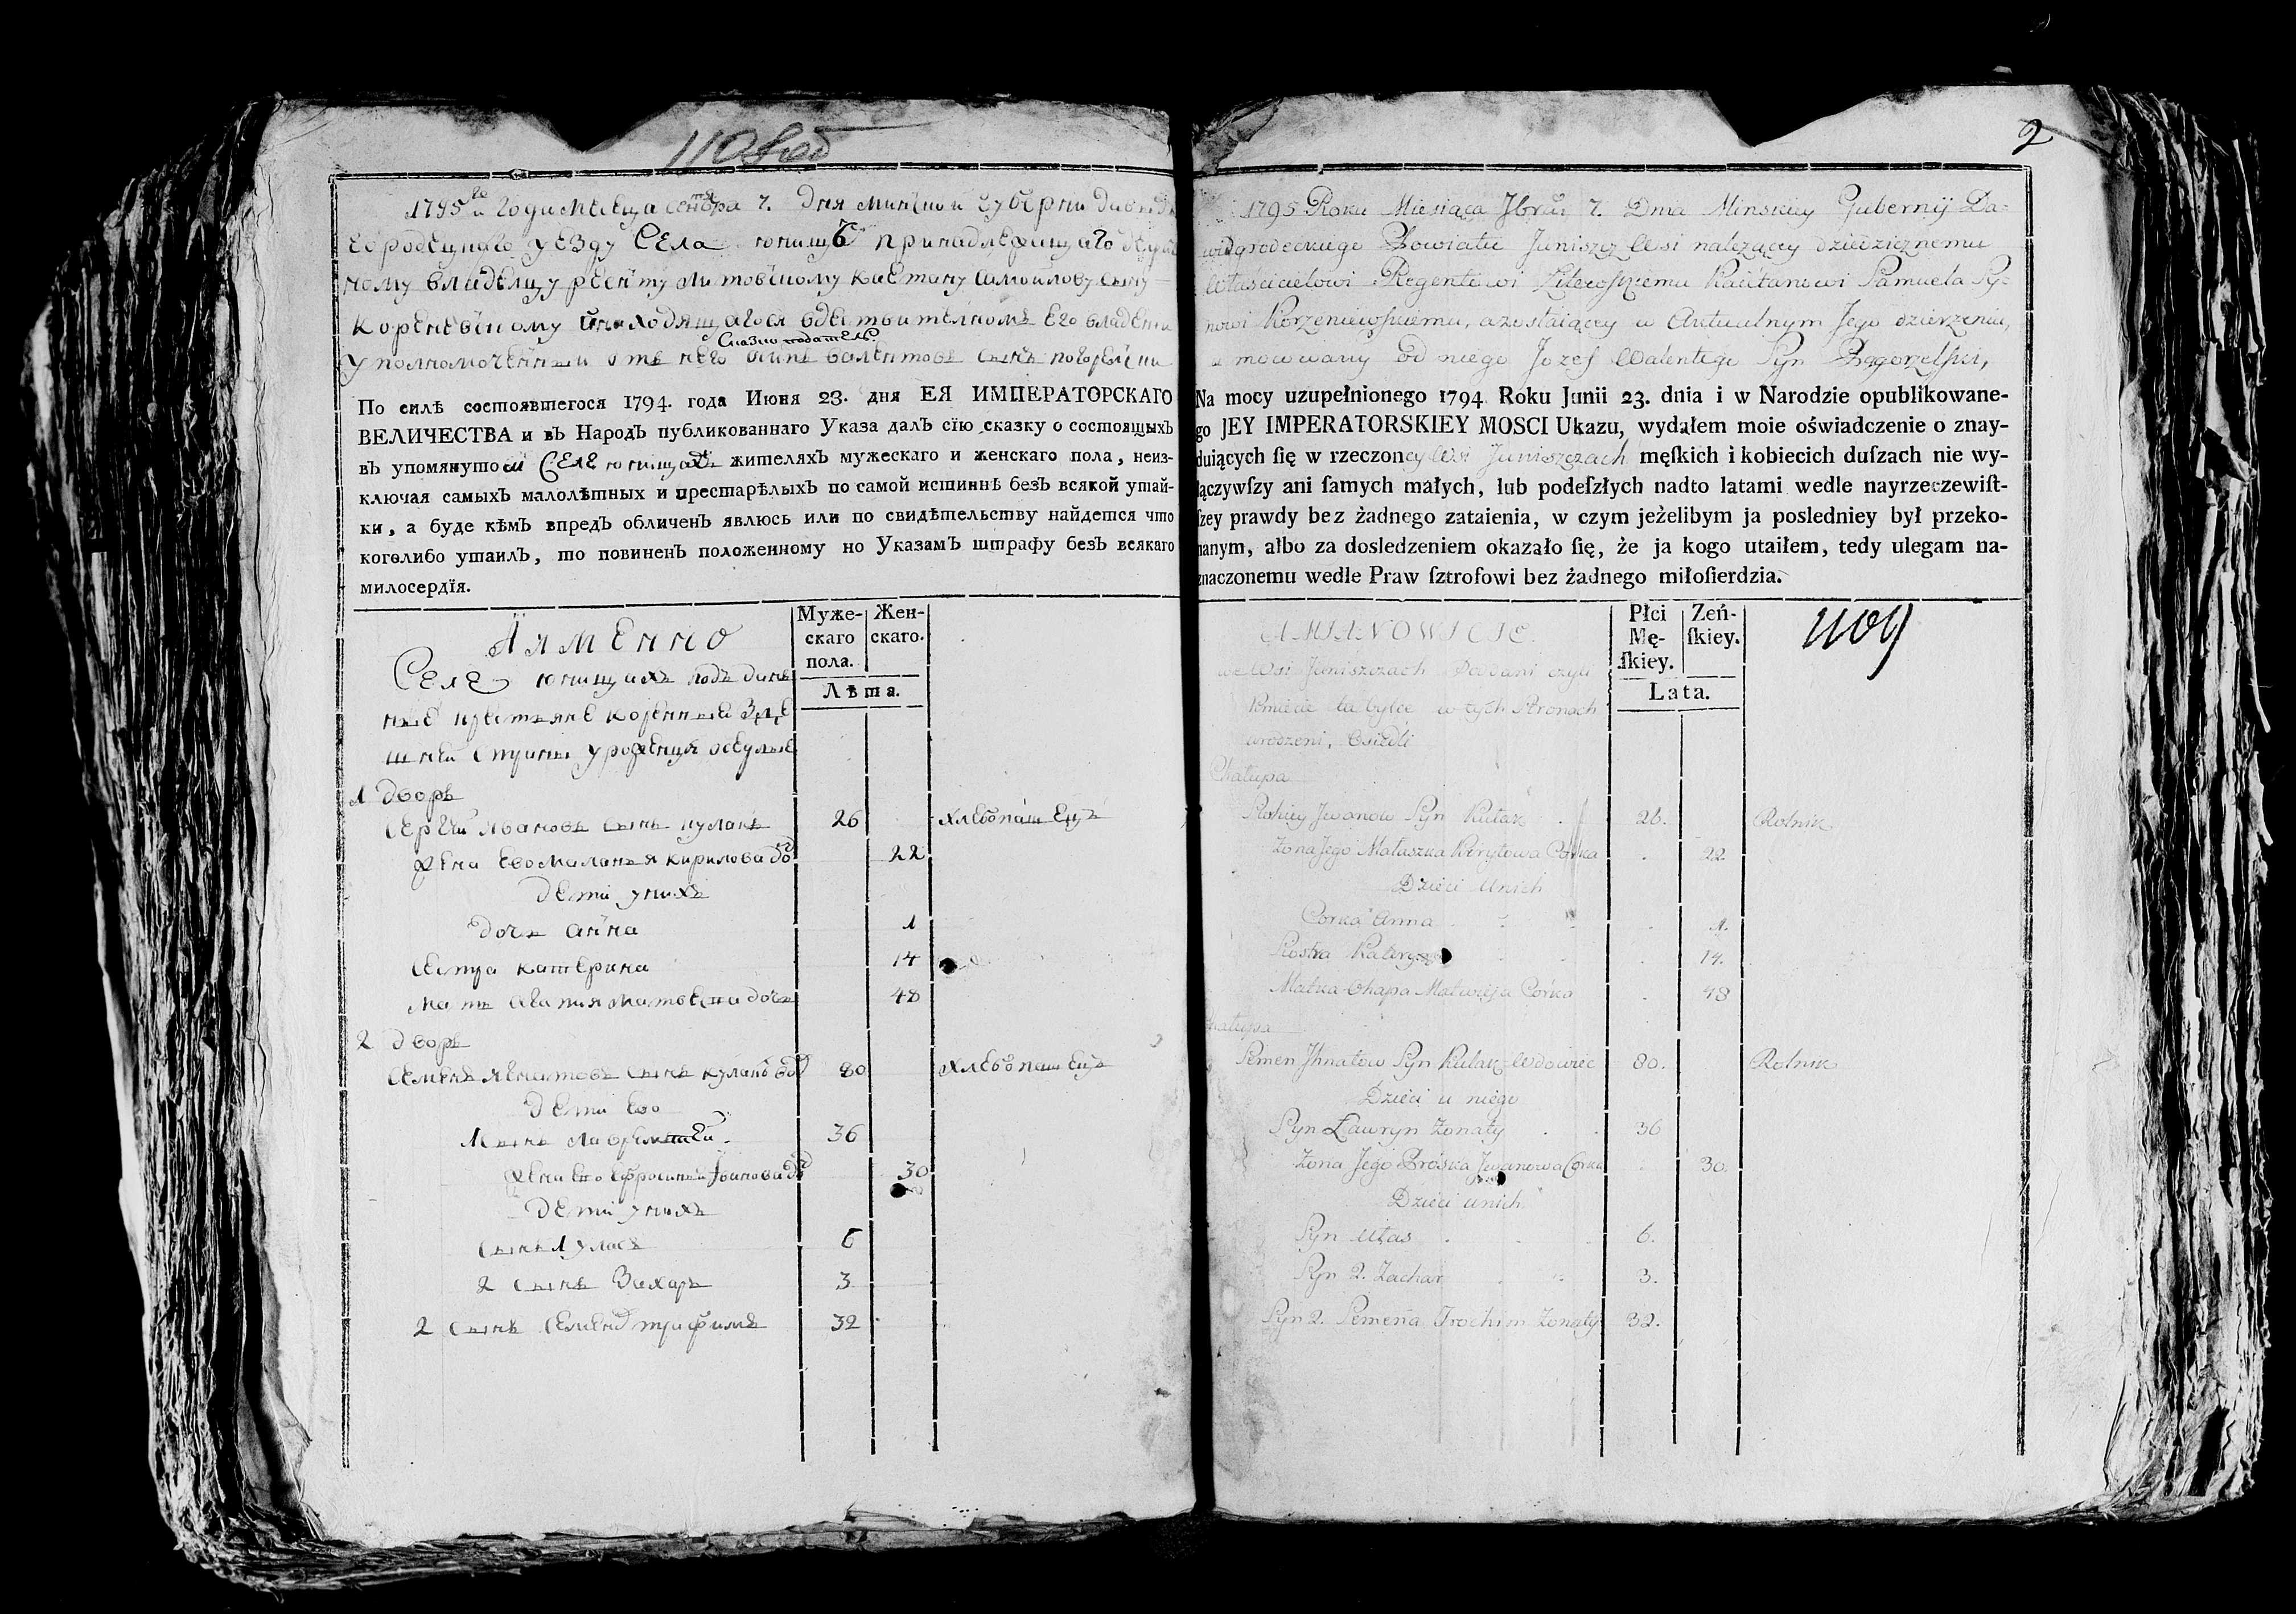 1795 года месеца сентебра 7. дня минской губернии давид
городецкаго уезду села юнищъ принадлежащаго
ному владелцу регенту литовскому каетану самойлову сыну
кореневскому находящагося вдействителномъ его владении
сказко податель
уполномоченный отъ него осипъ валентовъ сынъ погорелский
По силѣ состоявшегося 1794. года Июня 23. дня ЕЯ ИМПЕРАТОРСКАГО
ВЕЛИЧЕСТВА и въ Народъ публикованнаго Указа далъ сїю сказку о состоящыхъ
въ упомянутом селе юнищахъ жителяхъ мужескаго и женскаго пола, неиз-
ключая самыхъ малолѣтныхъ и престарѣлыхъ по самой истиннѣ безъ всякой утай-
ки, а буде кѣмъ впредъ обличенъ явлюсь или по свидѣтельству найдется что
коголибо утаилъ, то повиненъ положенному по Указамъ штрафу безъ всякаго
милосердїя.
Муже-
скаго
пола.
Жен-
скаго.
Лѣта.
Äименно
Селе юнищахъ подъдан
ные крестьяне коренные зде
шней страны уроженцы
1 дворъ
Сергей Ивановъ сынъ кулакъ 26 хлебопашецъ
жена ево Маланья кирилова до 22
дети унихъ
дочь анна 1
сестра катерина 14
мать матвеева дочь 48
2 дворъ
Семенъ игнатовъ сынъ кулакъ вд 80 хлебопашецъ
дети ево
1 сынъ лаврентей 36
жена ево ефросинья иванова до 30
дети унихъ
сынъ 1 уласъ 6
2 сынъ Захаръ 3
2 сынъ Семена трафимъ 32
2
1795 Roku Miesiąca 7bra 7. Dnia Minskiey Gubernij Da-
widgrodeckiego Powiatu Juniszcz Wsi należącey dziedzicznemu
Właścicielowi Regentowi Litewskiemu Kaietanowi Samuela Sy-
nowi Korzeniewskiemu, a zostaiącey w Aktualnym Jego dzierżeniu,
mocowany od niego Jozef Walentego Syn Pogorzelski,
Na mocy uzupełnionego 1794 Roku Junii 23. dnia i w Narodzie opublikowane-
go JEY IMPERATORSKIEY MOSCI Ukazu, wydałem moie oświadczenie o znay-
duiących ſię w rzeczoncy Wsi Juniszczach męſkich i kobiecich duſzach nie wy-
łączywſzy ani ſamych małych, lub podeſzłych nadto latami wedle nayrzeczewiſt-
ſzey prawdy bez żadnego zataienia, w czym jeżelibym ja posledniey był przeko-
nanym, albo za dosledzeniem okazało ſię, że ja kogo utaiłem, tedy ulegam na-
znaczonemu wedle Praw ſztrofowi bez żadnego miłoſierdzia.
Płci
Mę-
ſkiey.
Zeń-
ſkiey.
Lata.
AMIANOWICIE
we Wsi Juniszczach Poddani czyli
Kmiecie tu bylce w tych Stronach
urodzeni, Osiedli
Chałupa
Jwanow Syn Kułak 26. Rolnik
Żona Jego Małaszka Kiryłowa Corka 22
Dzieci Unich
Corka Anna 1.
Siostra Kateryna 14.
Matka Ohapa Matwieja Corka 48
Chałupa
Semen Jhnatow Syn Kułak Wdowiec 80. Rolnik
Dzieci u niego
Syn Ławryn Żonaty 36
Żona Jego Proska Jwanowa Corka 30.
Dzieci Unich
Syn Ułas 6.
Syn 2. Zachar 3.
Syn 2. Semena Trochim Żonaty 32.